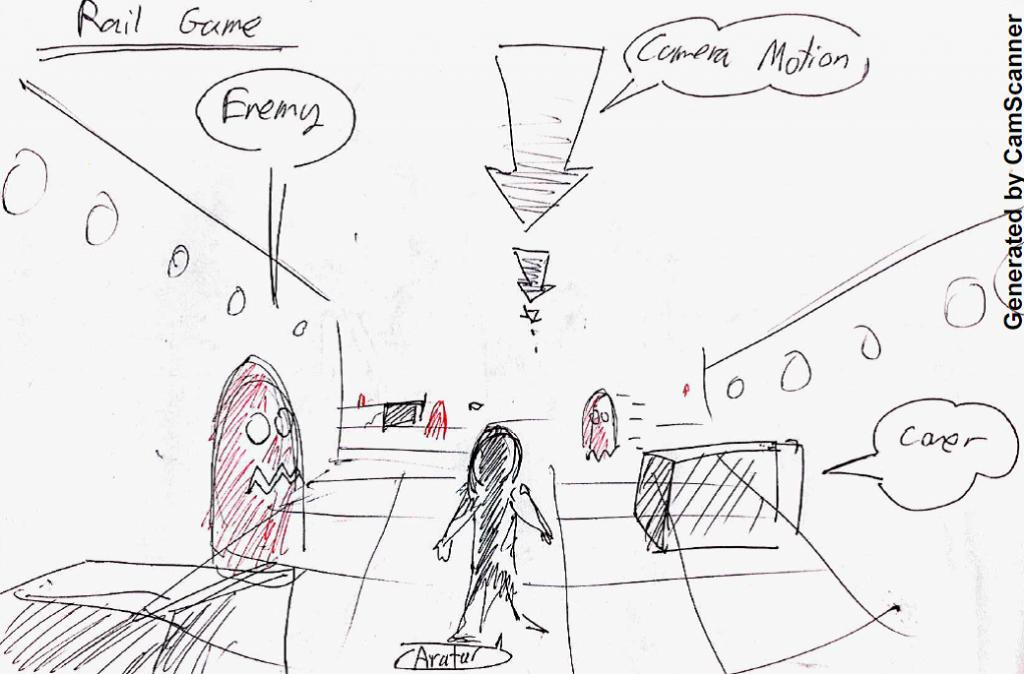 Rail Game
Camera Motion
Enemy
cover
Avatar
Generated by CamScanner